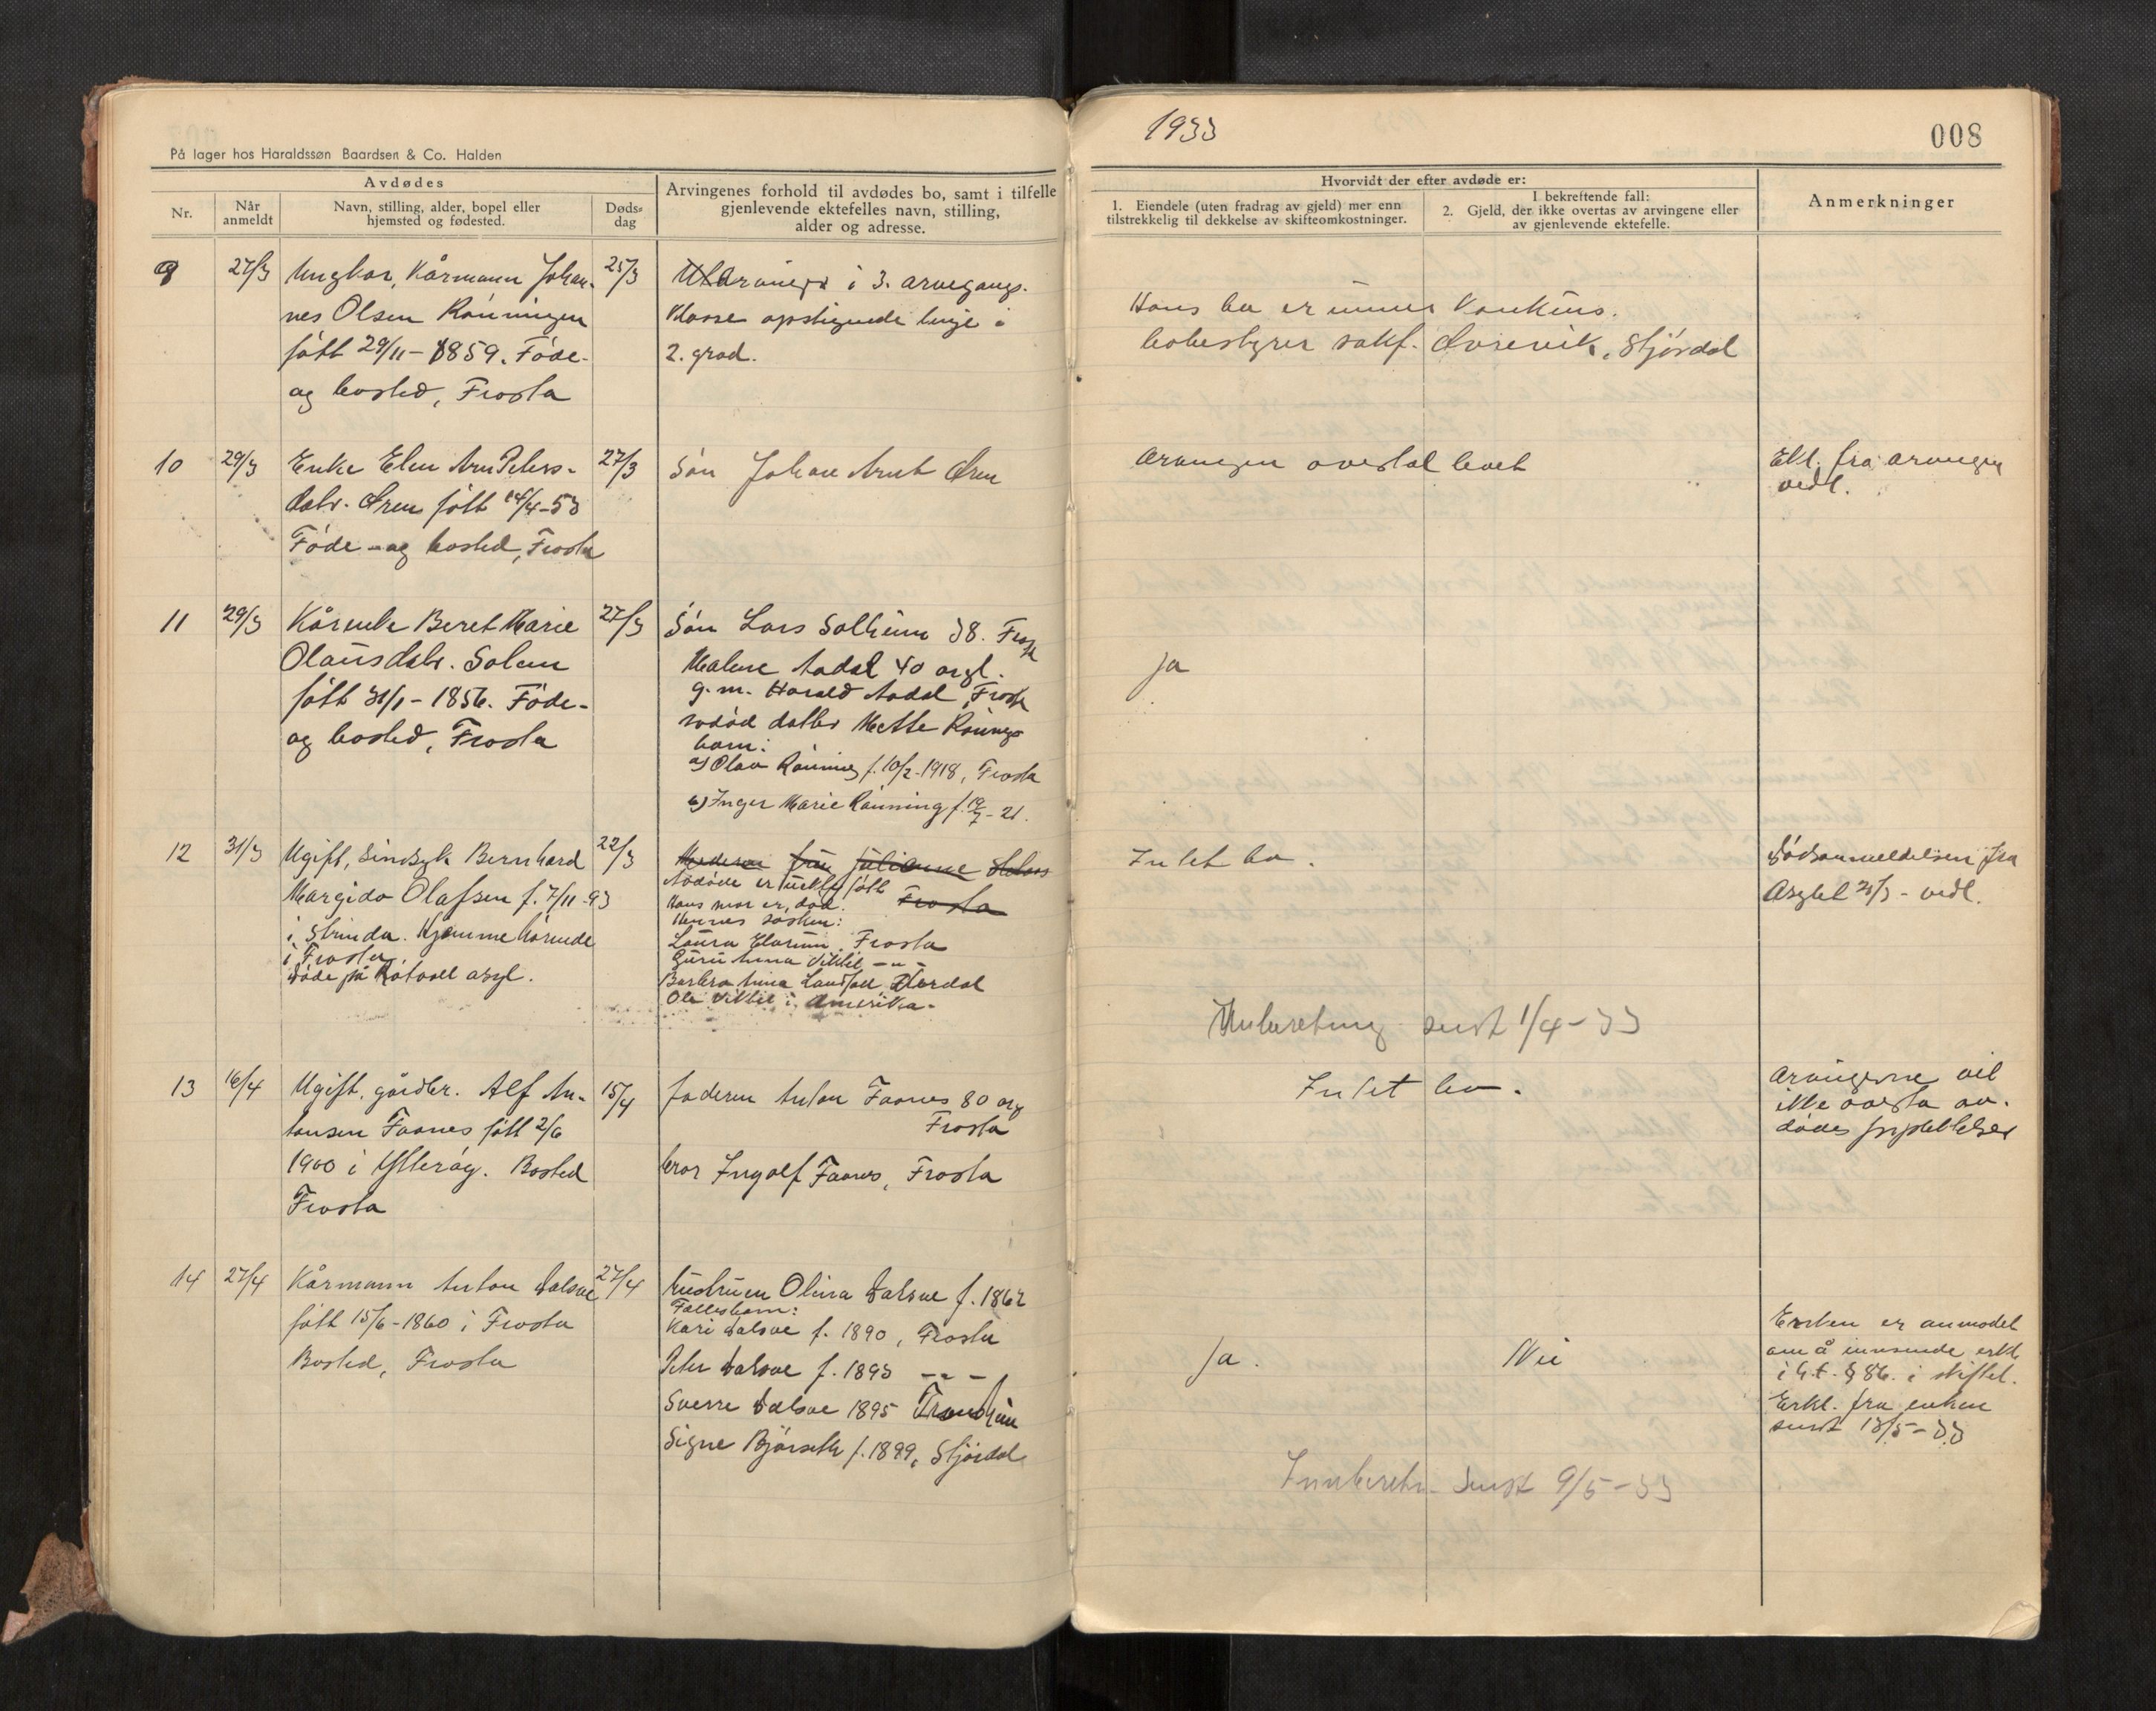 På lager hos Haraldssøn Baardsen & Co. Halden
Avdødes
Nr.
Når anmeldt
Navn, stilling, alder, bopel eller hjemsted og fødested.
Døds-dag
Arvingenes forhold til avdødes bo, samt i tilfelle
gjenlevende ektefelles navn, stilling,
alder og adresse.
9
27/3
Ungkar, Kårmann Johan-
nes Olsen Rönningen
född 29/11-1859. Föde-
og bosted, Frosta
25/3
i 3. arvegangs-
klasse opstigende linje i
2. grad.
10
29/3
Enke Elen Petersdatr. Øren
född 4-53
Föde- og bosted, Frosta
27/3
Sön Johan Arnt Øren
11
29/3
Kårenke Beret Marie
Olausdatr. Solem
född 31/1-1856. Föde-
og bosted, Frosta
27/3
Sön Lars Solheim 38. Frosta
Malene Aadal 40 årgl.
g.m. Harald Aadal, Frosta
avdød datter Mette Rönnings
barn:
a) Olav Rönning f. 10/2-1918, Frosta
b) Inger Marie Rönning f. 19/7-21.
12
31/3
Ugift, sindsyk Bernhard
Margido Olafsen f. 7/11-93
i Strinda. Hjemmehörende
i Frosta.
Döde på Rotvoll asyl.
22/3
Moderen fru Julianne
Frosta
Avdöde er uekte född
Hans mor er död.
Hennes søsken:
Laura Frosta
Guru Anna Viktil -"-
Barbra Anna
Ole Viktil i Amerika.
13
16/4
Ugift. gårdbr. Alf An-
tonsen Faanes född 2/6
1900 i Ytteröy. Bosted
Frosta
15/4
faderen Anton Faanes 80 årg
Frosta
bror Ingolf Faanes, Frosta
14
27/4
Kårmann Anton Dalsve
född 15/6-1860 i Frosta
Bosted, Frosta
27/4
hustruen Olina Dalsve f. 1862
Fellesbarn:
Kari Dalsve f. 1890, Frosta
Peter Dalsve f. 1893 -"-
Sverre Dalsve 1895 Trondheim
Signe Björseth f. 1899, Stjördal
1933
008
Hvorvidt der efter avdøde er:
1. Eiendele (uten fradrag av gjeld) mer enn
tilstrekkelig til dekkelse av skifteomkostninger.
I bekreftende fall:
2. Gjeld, der ikke overtas av arvingene eller
av gjenlevende ektefelle.
Anmerkninger
Hans bo er under konkurs.
bobestyrer sakf. Stjördal
Arvingen overtok boet
Erkl. fra arvingen
vedl.
Ja
Intet bo.
Dödsanmeldelsen fra
Asylet 21/3 - vedl.
Innberetning sendt 1/4-33
Intet bo.
Arvingerne vil
ikke overta av-
dödes forpliktelser
Ja.
Nei
Enken er anmodet
om å innsende erkl.
i h.t. § 86. i skiftel.
Erkl. fra enken
sendt 13/5-33
Innberetn. sendt 9/5-33